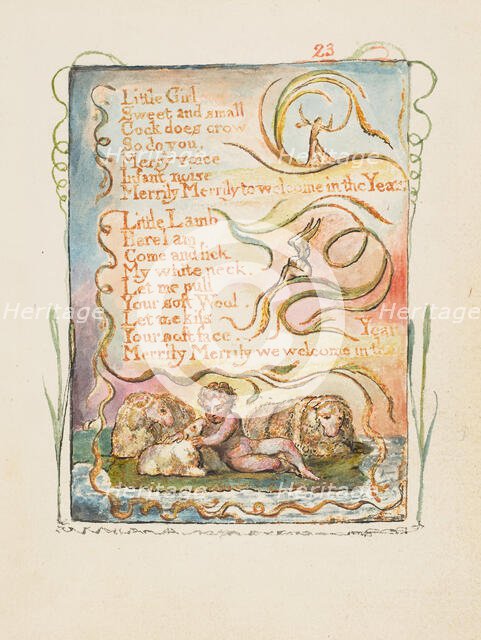 23
Little Girl
Sweet and small
Cock does crow
So do you.
Merry voice
Infant noise
Merrily Merrily to welcome in the Year
Little Lamb
Here I am,
Come and lick
My white neck.
Let me pull
Your soft Wool.
Let me kiss
Your soft face.
Merrily Merrily we welcome in the
Year
Heritage
Heritage
Heritage
Heritage
Heritage
Heritage
Heritage